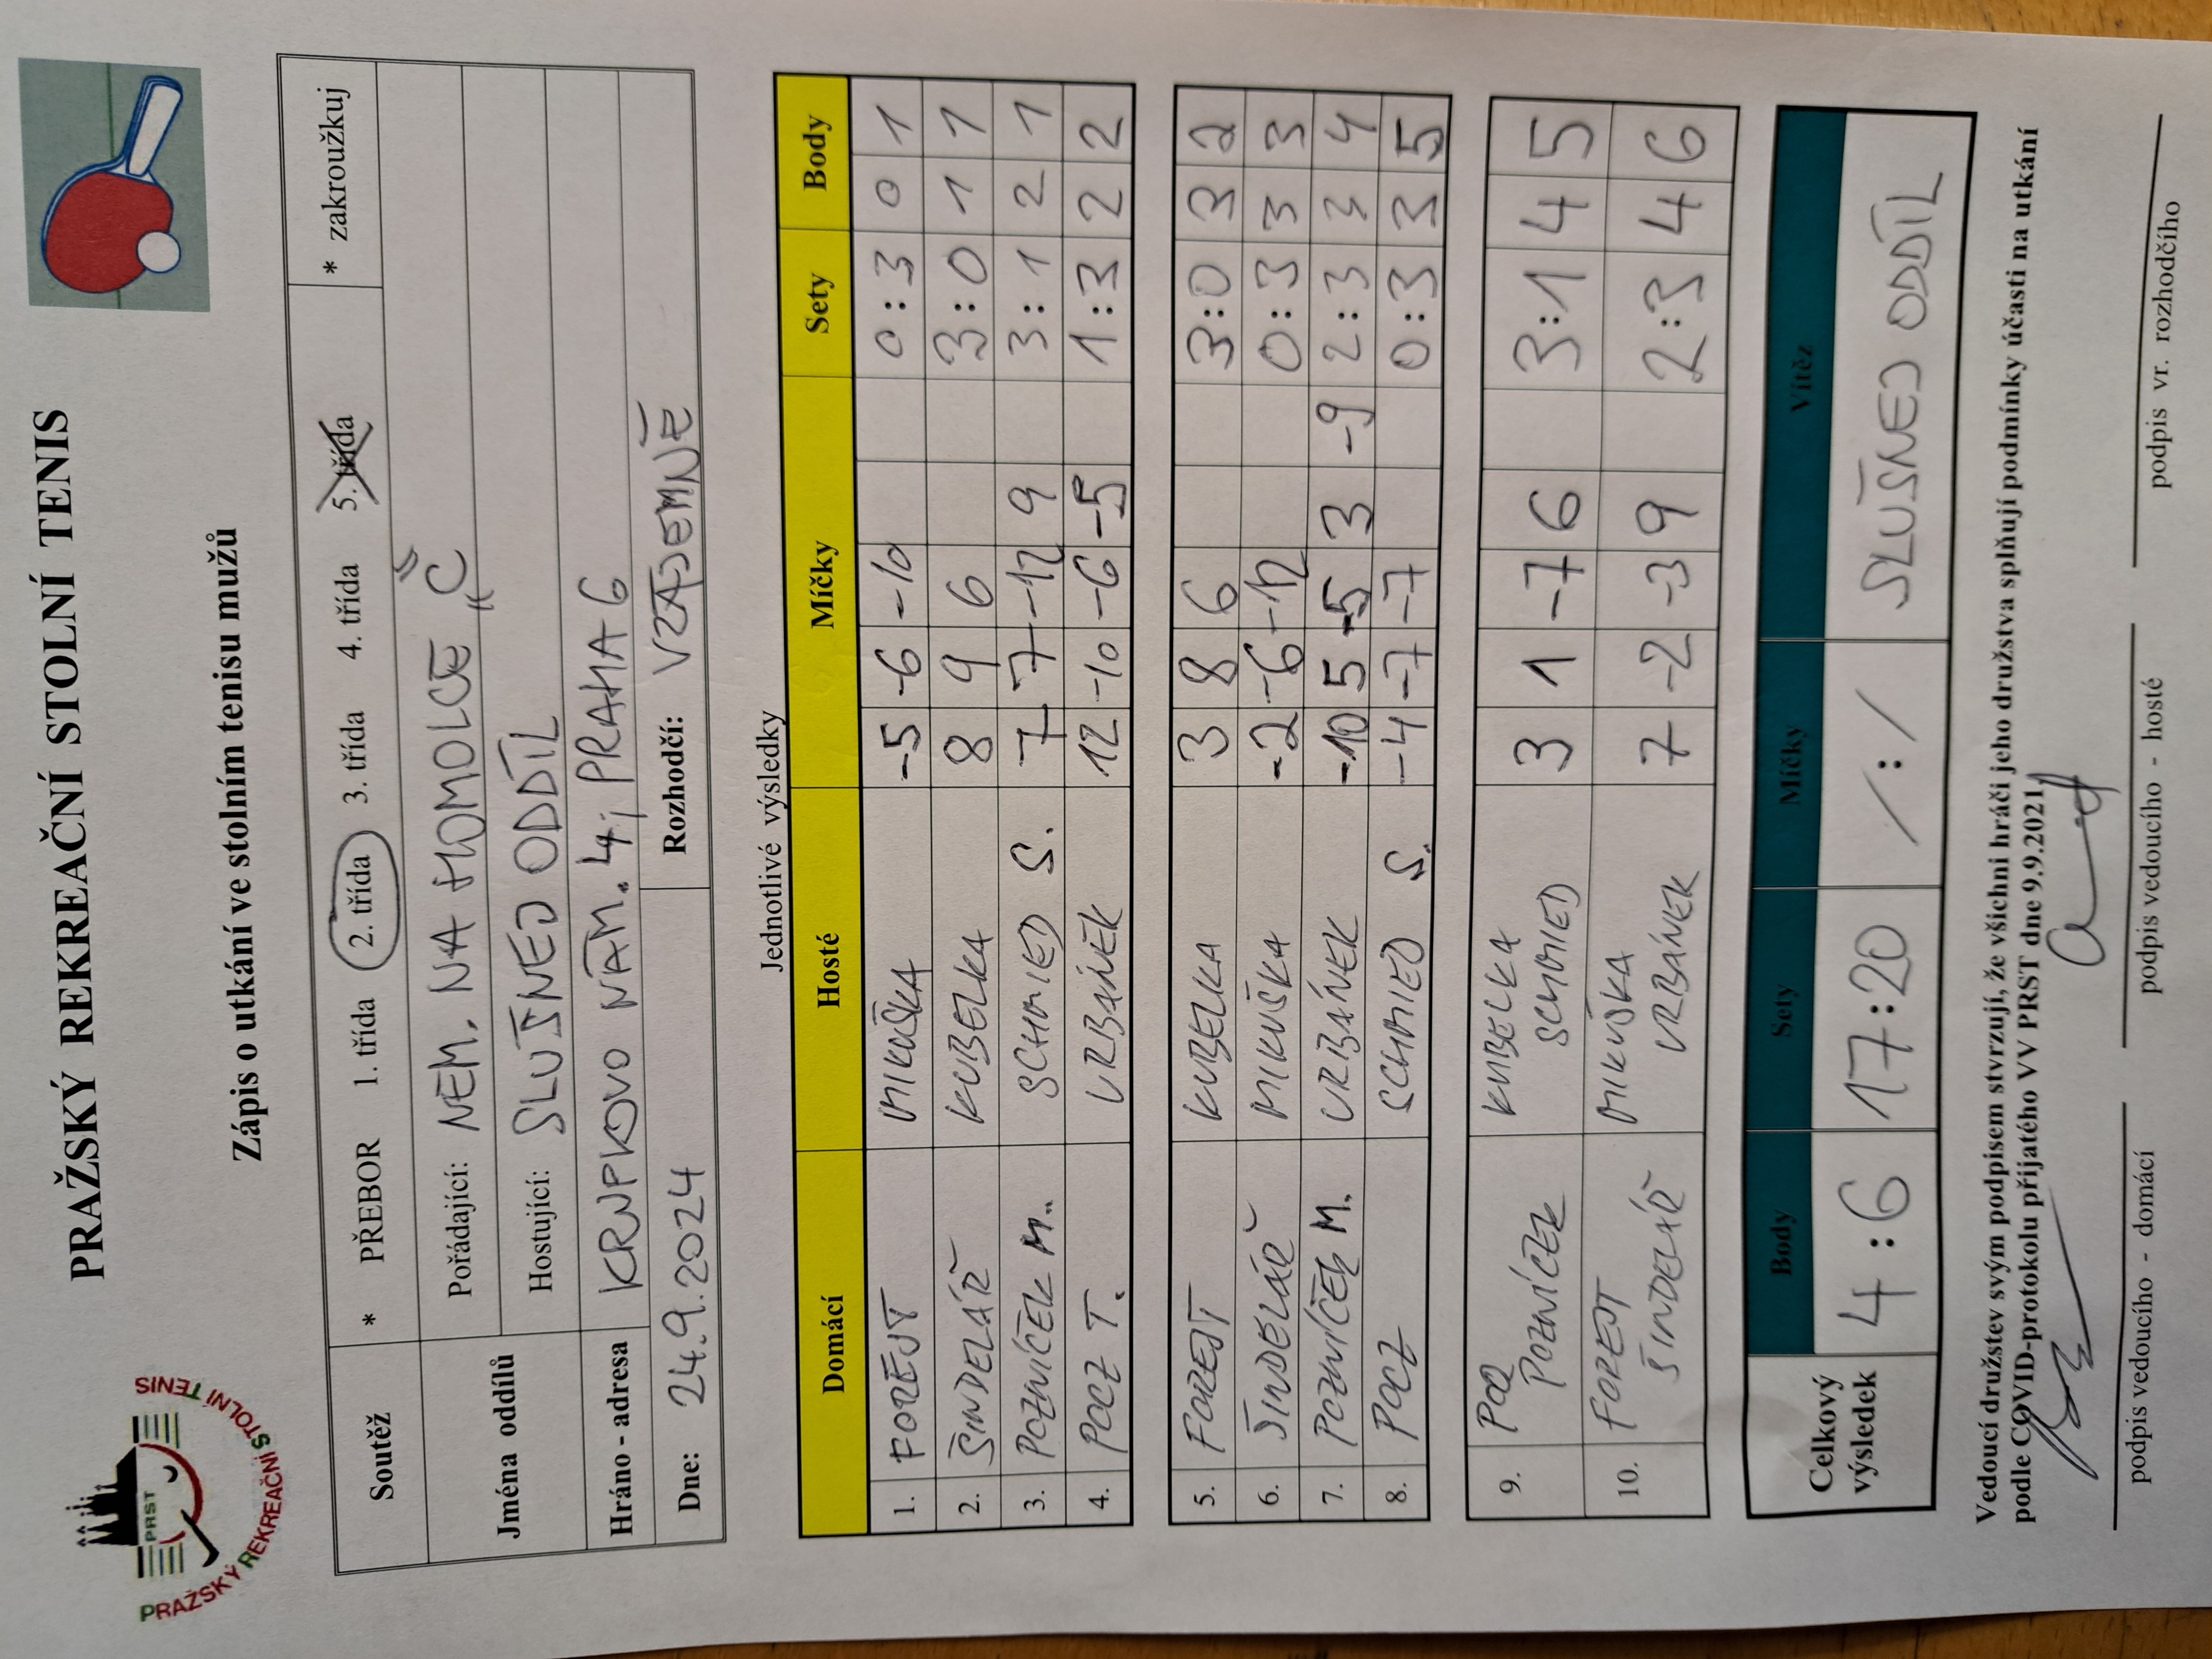 PRAŽSKÝ REKREAČNÍ STOLNÍ TENIS
PRST
PRAŽSKÝ REKREAČNÍ STOLNÍ TENIS
SINET
Zápis o utkání ve stolním tenisu mužů
Soutěž * PŘEBOR 1. třída 2. třída 3. třída 4. třída 5. třída * zakroužkuj
Jména oddílů Pořádající: NEM. NA HOMOLCE „Č“
Hostující: SLUŠNEJ ODDÍL
Hráno - adresa KRUPKOVO NÁM. 4; PRAHA 6
Dne: 24.9.2024 Rozhodčí: VZÁJEMNĚ
Jednotlivé výsledky
Domácí Hosté Míčky Sety Body
1. FOREJT MIKUŠKA -5 -6 -10 0:3 0 1
2. ŠINDELÁŘ KUBELKA 8 9 6 3:0 1 1
3. POZNÍČEK M. SCHMIED S. 7 7 -12 9 3:1 2 1
4. POCZ T. URBÁNEK 12 -10 -6 -5 1:3 2 2
5. FOREJT KUBELKA 3 8 6 3:0 3 2
6. ŠINDELÁŘ MIKUŠKA -2 -6 -12 0:3 3 3
7. POZNÍČEK M. URBÁNEK -10 5 -5 3 -9 2:3 3 4
8. POCZ SCHMIED S. -4 -7 -7 0:3 3 5
9. POCZ KUBELKA 3 1 -7 6 3:1 4 5
POZNÍČEK SCHMIED
10. FOREJT MIKUŠKA 7 -2 -3 9 2:3 4 6
ŠINDELÁŘ URBÁNEK
Celkový výsledek Body Sety Míčky Vítěz
4:6 17:20 / : / SLUŠNEJ ODDÍL
Vedoucí družstev svým podpisem stvrzují, že všichni hráči jeho družstva splňují podmínky účasti na utkání
podle COVID-protokolu přijatého VV PRST dne 9.9.2021
podpis vedoucího - domácí podpis vedoucího - hosté podpis vr. rozhodčího